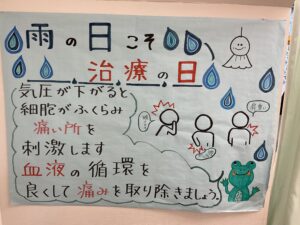 雨の日こそ
治療の日
気圧が下がると
細胞がふくらみ
痛い所を
刺激します
血液の循環を
良くして痛みを取り除きましょう。